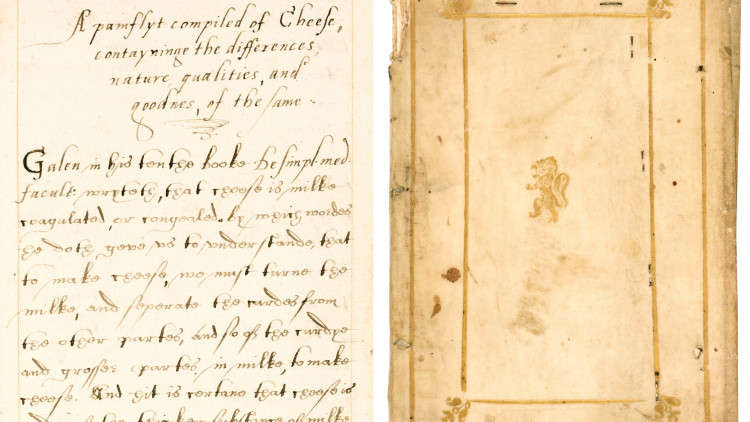 A pamflyt compiled of Cheese,
contayninge the differences,
nature, qualities, and
goodnes, of the same.
Galen in his tenthe booke De simpl. med.
facult: wryteth, that cheese is milke
coagulated, or congealed. by which wordes
he doth geve us to understande, that
to make cheese, we must turne the
milke, and seperate the curdes from
the other partes, and so of the curdye
and grosser partes, in milke, to make
cheese. And hit is certane that cheese is
thicker substance of milke